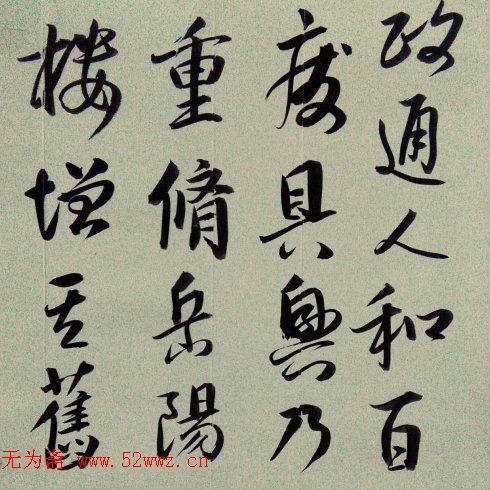 政通人和百
废具興乃
重脩岳陽
樓增其舊
无为斋 www.52wwz.cn